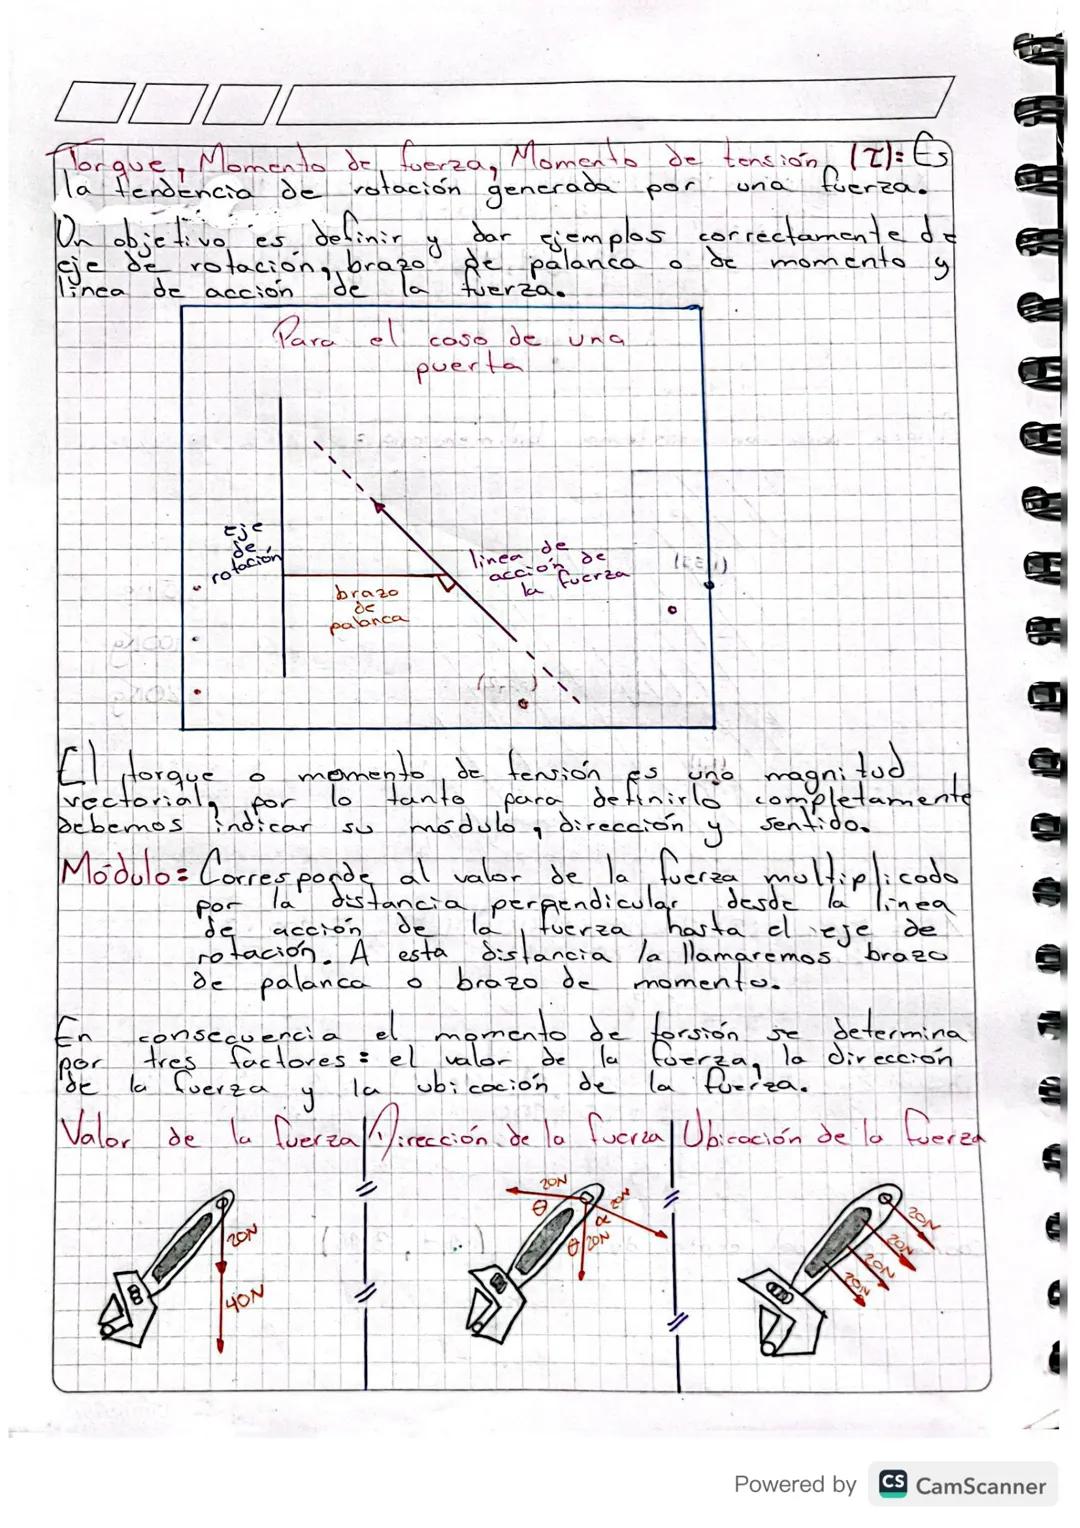 Torque, Momento de fuerza, Momento de tensión (τ): Es
la tendencia de rotación generada por una fuerza.
Un objetivo es definir y dar ejemplos correctamente de
eje de rotación, brazo de palanca o de momento y
linea de acción de la fuerza.
Para el caso de una
puerta
Eje
de
rotación
linea de
acción de
la fuerza
brazo
de
palanca
El torque o momento de tensión es una magnitud
vectorial, por lo tanto para definirlo completamente
debemos indicar su módulo, dirección y sentido.
Módulo: Corresponde al valor de la fuerza multiplicado
por la distancia perpendicular desde la linea
de acción de la fuerza hasta el eje de
rotación. A esta distancia la llamaremos brazo
de palanca o brazo de momento.
En consecuencia el momento de torsión se determina
por tres factores: el valor de la fuerza, la dirección
de la fuerza y la ubicación de la fuerza.
Valor de la fuerza
Dirección de la fuerza
Ubicación de la fuerza
20N
40N
20N
θ
20N
α
θ
20N
20N
20N
20N
20N
Powered by CS CamScanner